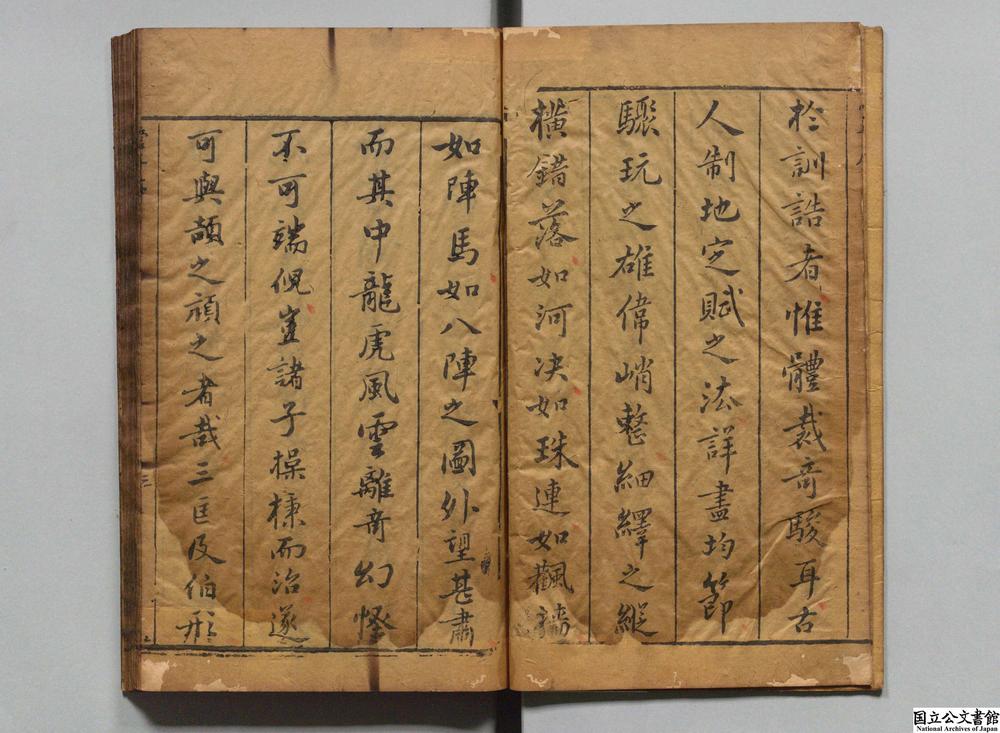 於訓誥者惟體裁奇駿耳古
人制地定賦之法詳盡均節
驟玩之雄偉峭整細繹之縱
橫錯落如河决如珠連如颿檣
如陣馬如八陣之圖外望甚肅
而其中龍虎風雲離奇幻怪
不可端倪豈諸子操槧而治遂
可與頡之頏之者哉三匡及伯形
国立公文書館
National Archives of Japan